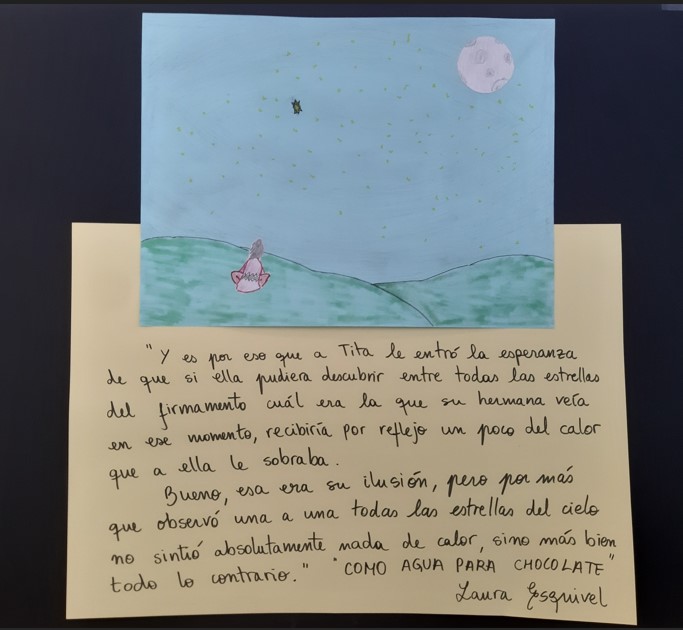 "Y es por eso que a Tita le entró la esperanza
de que si ella pudiera descubrir entre todas las estrellas
del firmamento cuál era la que su hermana veía
en ese momento, recibiría por reflejo un poco del calor
que a ella le sobraba.
Bueno, esa era su ilusión, pero por más
que observó una a una todas las estrellas del cielo
no sintió absolutamente nada de calor, sino más bien
todo lo contrario." "COMO AGUA PARA CHOCOLATE"
Laura Esquivel